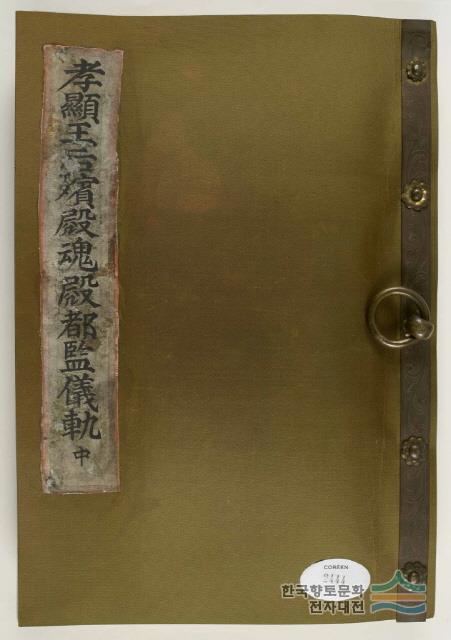 孝顯王后殯殿魂殿都監儀軌 中
COREEN
2444
한국향토문화
전자대전